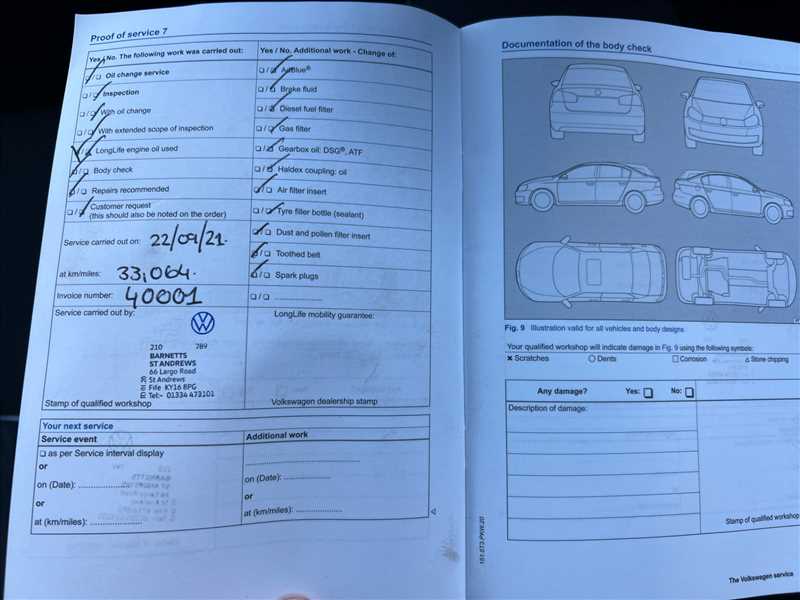 Proof of service 7
Yes / No. The following work was carried out:
❑ / ❑ Oil change service
❑ / ❑ Inspection
❑ / ❑ With oil change
❑ / ❑ With extended scope of inspection
❑ / ❑ LongLife engine oil used
❑ / ❑ Body check
❑ / ❑ Repairs recommended
❑ / ❑ Customer request
(this should also be noted on the order)
Service carried out on: 22/09/21.
at km/miles: 33,064.
Invoice number: 40001
Service carried out by:
210 789
BARNETTS
ST ANDREWS
66 Largo Road
St Andrews
Fife KY16 8PG
Tel:- 01334 473101
Stamp of qualified workshop
Yes / No. Additional work - Change of:
❑ / ❑ AdBlue®
❑ / ❑ Brake fluid
❑ / ❑ Diesel fuel filter
❑ / ❑ Gas filter
❑ / ❑ Gearbox oil: DSG®, ATF
❑ / ❑ Haldex coupling: oil
❑ / ❑ Air filter insert
❑ / ❑ Tyre filler bottle (sealant)
❑ / ❑ Dust and pollen filter insert
❑ / ❑ Toothed belt
❑ / ❑ Spark plugs
❑ / ❑ ....................
LongLife mobility guarantee:
Volkswagen dealership stamp
Your next service
Service event
❑ as per Service interval display
or
on (Date): ....................
or
at (km/miles): ....................
Additional work
on (Date): ....................
or
at (km/miles): ....................
Documentation of the body check
Fig. 9 Illustration valid for all vehicles and body designs
Your qualified workshop will indicate damage in Fig. 9 using the following symbols:
✕ Scratches ○ Dents □ Corrosion △ Stone chipping
Any damage? Yes: ❑ No: ❑
Description of damage:
Stamp of qualified workshop
151.5T3.PKW.20
The Volkswagen service